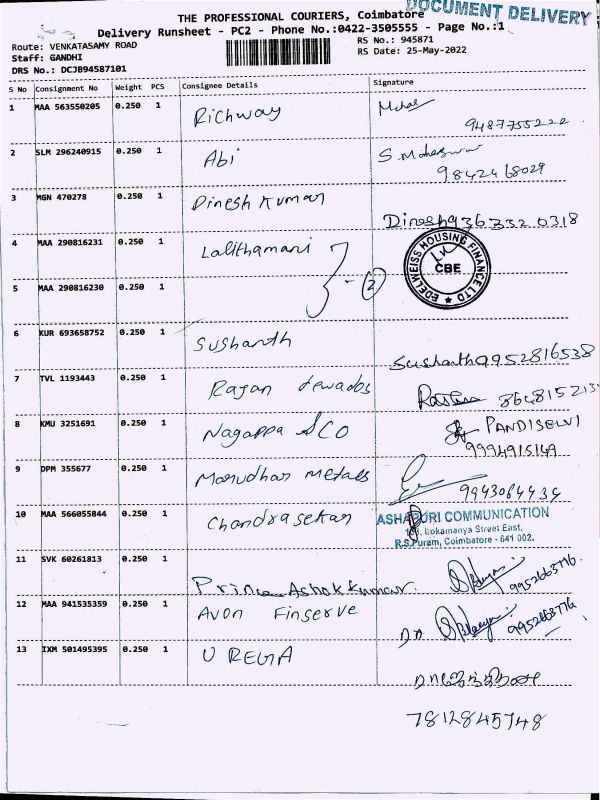 DOCUMENT DELIVERY
THE PROFESSIONAL COURIERS, Coimbatore
Delivery Runsheet - PC2 - Phone No.:0422-3505555 - Page No.:1
Route: VENKATASAMY ROAD RS No.: 945871
Staff: GANDHI RS Date: 25-May-2022
DRS No.: DCJB94587101
S No Consignment No Weight PCS Consignee Details Signature
1 MAA 563550205 0.250 1 Richway
9487755222
2 SLM 296240915 0.250 1 Abi S. Maheswar
9842468029
3 MGN 470278 0.250 1 Dinesh Kumar
Dinesh 9363320318
4 MAA 290816231 0.250 1 Lalithamani
EDELWEISS HOUSING FINANCE LTD
CBE
5 MAA 290816230 0.250 1 - 2
6 KUR 693658752 0.250 1 Sushanth
Sushanth 9952816538
7 TVL 1193443 0.250 1 Rajan
8 KMU 3251691 0.250 1 Nagappa & CO PANDISELVI
9994915149
9 DPM 355677 0.250 1 Marudhar Metals
9943064434
10 MAA 566055844 0.250 1 Chandrasekar
ASHAPURI COMMUNICATION
Lokamanya Street East,
R.S.Puram, Coimbatore - 641 002.
11 SVK 60261813 0.250 1
Prince Ashok kumar. 9952663776
12 MAA 941535359 0.250 1 Avon Finserve
9952663776
13 IXM 501495395 0.250 1 U REGA
7812845748